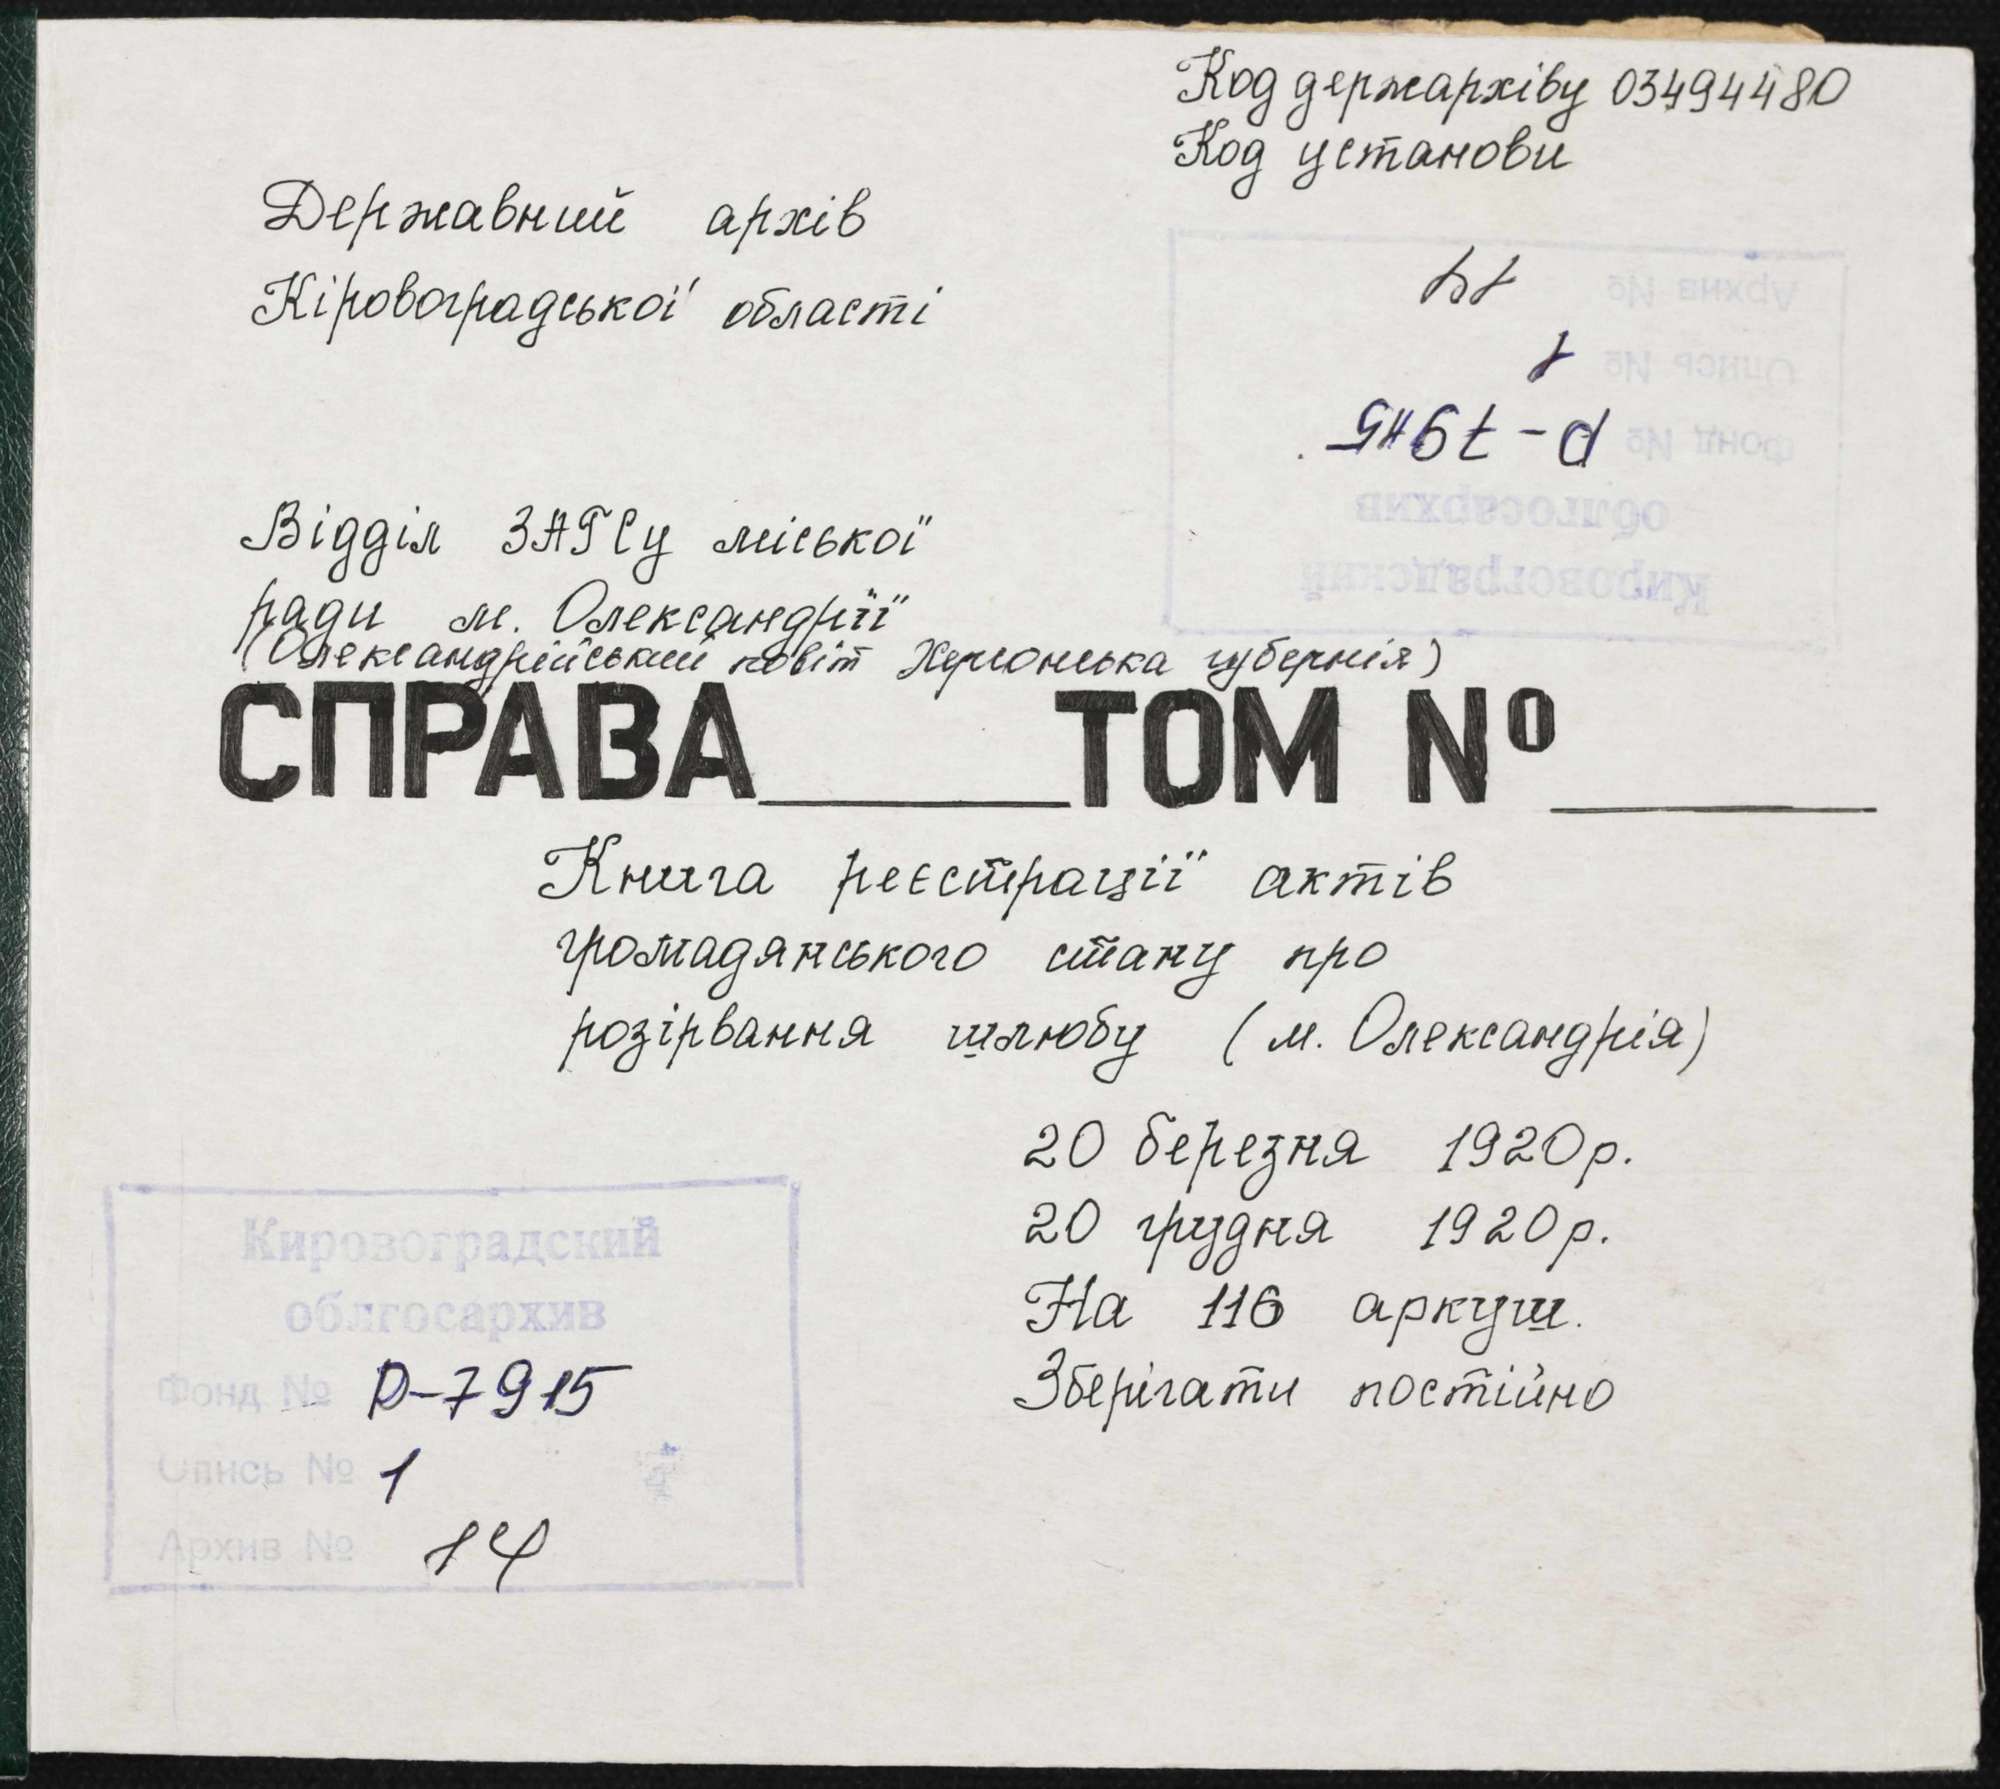 Код держархіву 03494480
Код установи
Державний архів
Кіровоградської області
Архив № 14
Опись № 1
Фонд № Р-7915
облгосархив
Кировоградский
Відділ ЗАГСу міської
ради м. Олександрії
(Олександрійський повіт Херсонська губернія)
СПРАВА____ТОМ № ____
Книга реєстрації актів
громадянського стану про
розірвання шлюбу (м. Олександрія)
20 березня 1920р.
20 грудня 1920р.
На 116 аркуш.
Зберігати постійно
Кировоградский
облгосархив
Фонд № Р-7915
Опись № 1
Архив № 14